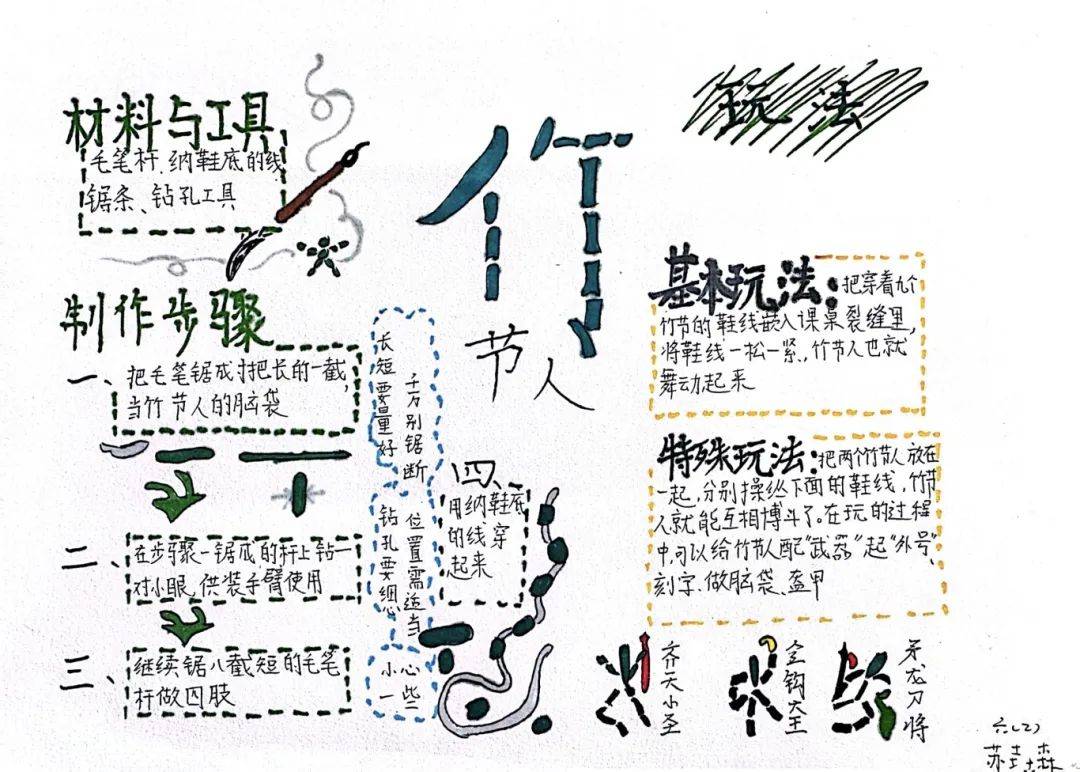 材料与工具
毛笔杆、纳鞋底的线
锯条、钻孔工具
制作步骤
一、
把毛笔锯成寸把长的一截,
当竹节人的脑袋
二、
在步骤一锯成的杆上钻一
对小眼,供装手臂使用
三、
继续锯八截短的毛笔
杆做四肢
长短要量好
千万别锯断
钻孔要细心
位置需适当
小心
一些
四、
用纳鞋底
的线穿
起来
竹
节
人
玩法
基本玩法:把穿着九个
竹节的鞋线嵌入课桌裂缝里,
将鞋线一松一紧,竹节人也就
舞动起来
特殊玩法:把两个竹节人放在
一起,分别操纵下面的鞋线,竹节
人就能互相博斗了。在玩的过程
中,可以给竹节人配“武器”起“外号”、
刻字、做脑袋、盔甲
齐天小圣
金钩大王
刀将
六(2)